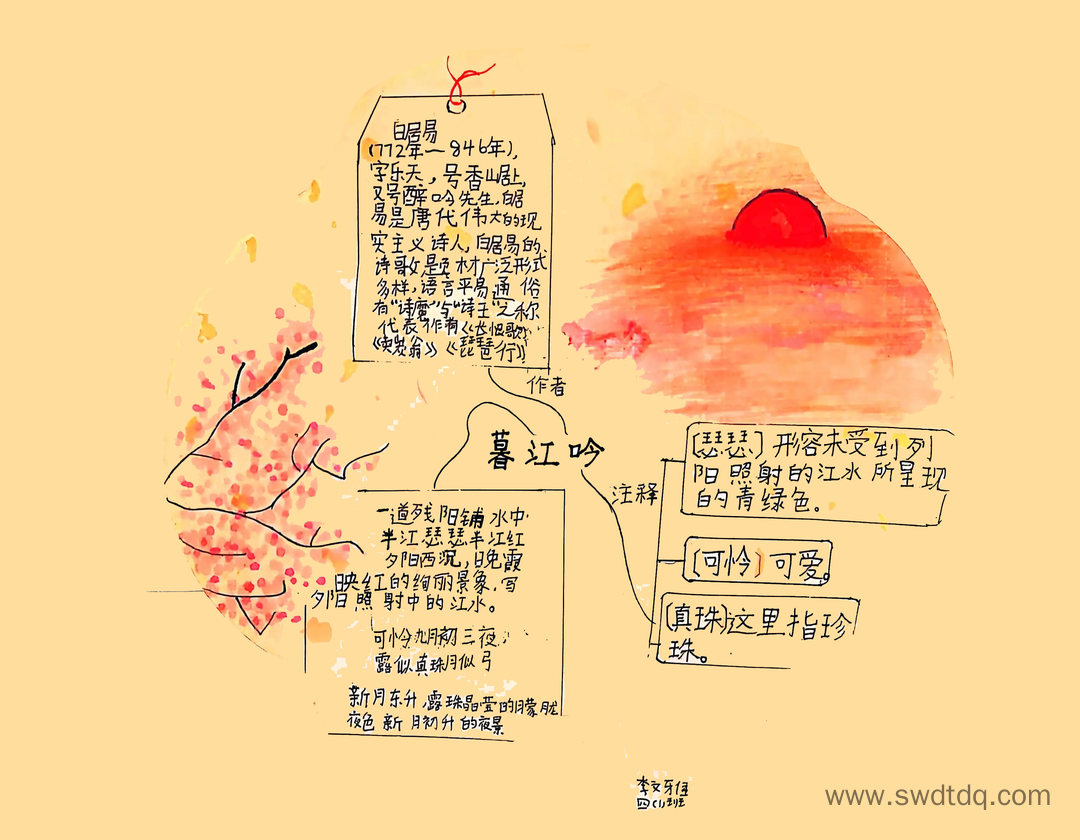 白居易
(772年一846年),
字乐天，号香山居士,
又号醉吟先生,白居
易是唐代伟大的现
实主义诗人,白居易的
诗歌是题材广泛形式
多样,语言平易通俗
有"诗魔"与"诗王"之称
代表作有《长恨歌》
《卖炭翁》《琵琶行》
作者
暮江吟
注释
[瑟瑟]形容未受到列
阳照射的江水所呈现
的青绿色。
[可怜]可爱。
[真珠]这里指珍
珠。
一道残阳铺水中
半江瑟瑟半江红
夕阳西沉,晚霞
映红的绚丽景象,写
夕阳照射中的江水。
可怜九月初三夜
露似真珠月似弓
新月东升,露珠晶莹的朦胧
夜色新月初升的夜景
李文牙佳
四(1)班
www.swdtdq.com